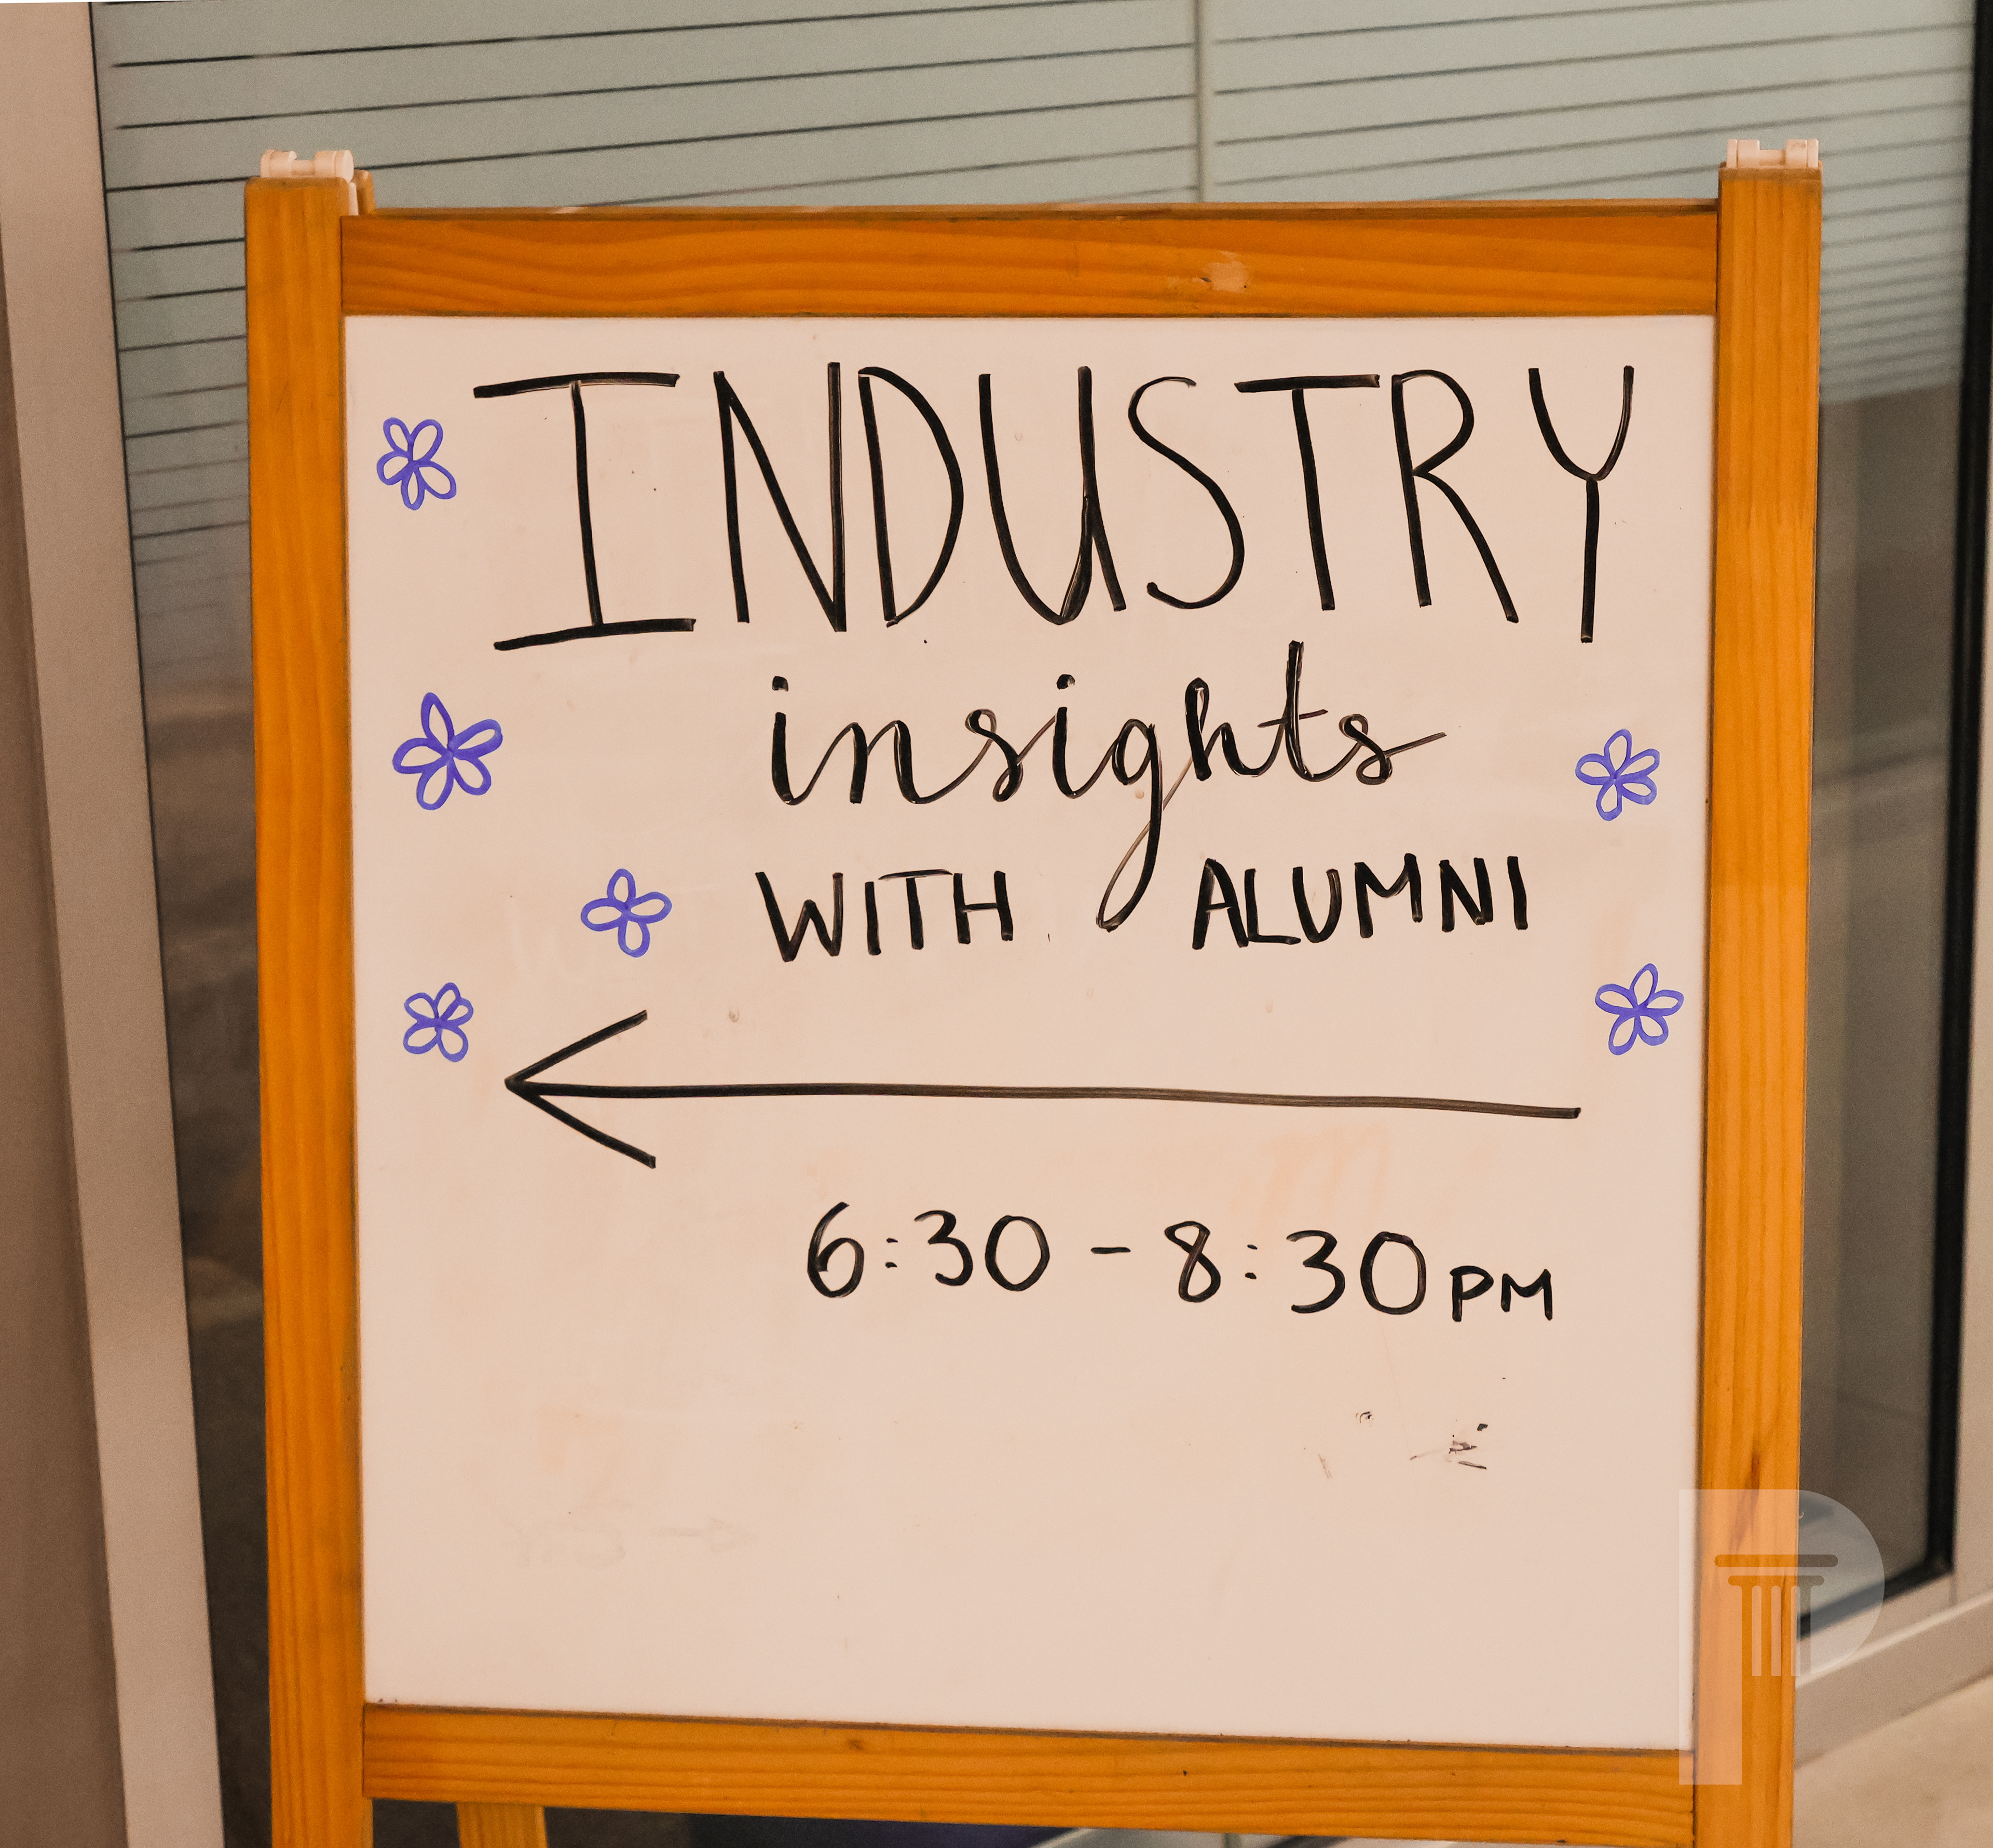 INDUSTRY
insights
WITH ALUMNI
6:30 - 8:30 PM